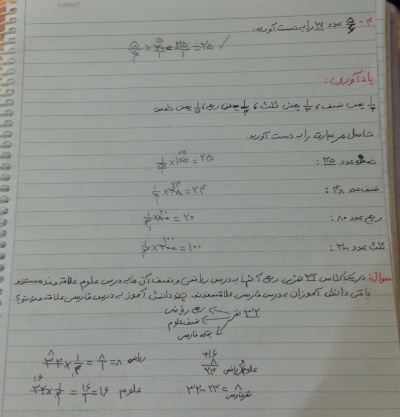 ۲- ۵/۶ عدد ۳۰ را به دست آورید.
۵/۶ × ۳۰ = ۲۵/۱ = ۲۵ ✓
یادآوری:
۱/۲ یعنی نصف، ۱/۳ یعنی ثلث، ۱/۴ یعنی ربع، ۱/۵ یعنی خمس
حاصل هر عبارت را به دست آورید.
خمس عدد ۱۲۵: ۱/۵ × ۱۲۵ = ۲۵
نصف عدد ۴۸: ۱/۲ × ۴۸ = ۲۴
ربع عدد ۸۰: ۱/۴ × ۸۰ = ۲۰
ثلث عدد ۳۰۰: ۱/۳ × ۳۰۰ = ۱۰۰
سوال: در یک کلاس ۳۲ نفری ربع آنها به درس ریاضی و نصف آن ها به درس علوم علاقه مند هستند و
باقی دانش آموزان به درس فارسی علاقه مندند. چند دانش آموز به درس فارسی علاقه مندند؟
۳۲ نفر
ربع ریاضی
نصف علوم
بقیه فارسی
ریاضی ۳۲ × ۱/۴ = ۸/۱ = ۸
۱۶ + ۸ = ۲۴ علوم و ریاضی
علوم ۳۲ × ۱/۲ = ۱۶/۱ = ۱۶
۳۲ - ۲۴ = ۸ نفر فارسی